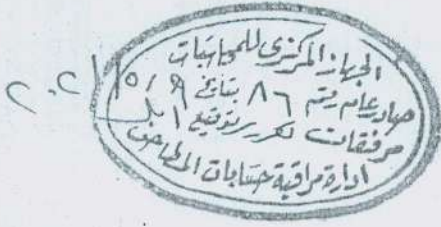 الجهاز المركزى للمحاسبات
صادر عام رقم ٨٦ بتاريخ ٩/٥/٢٠٢١
مرفقات تقرير توقيع
ادارة مراقبة حسابات المطاحن